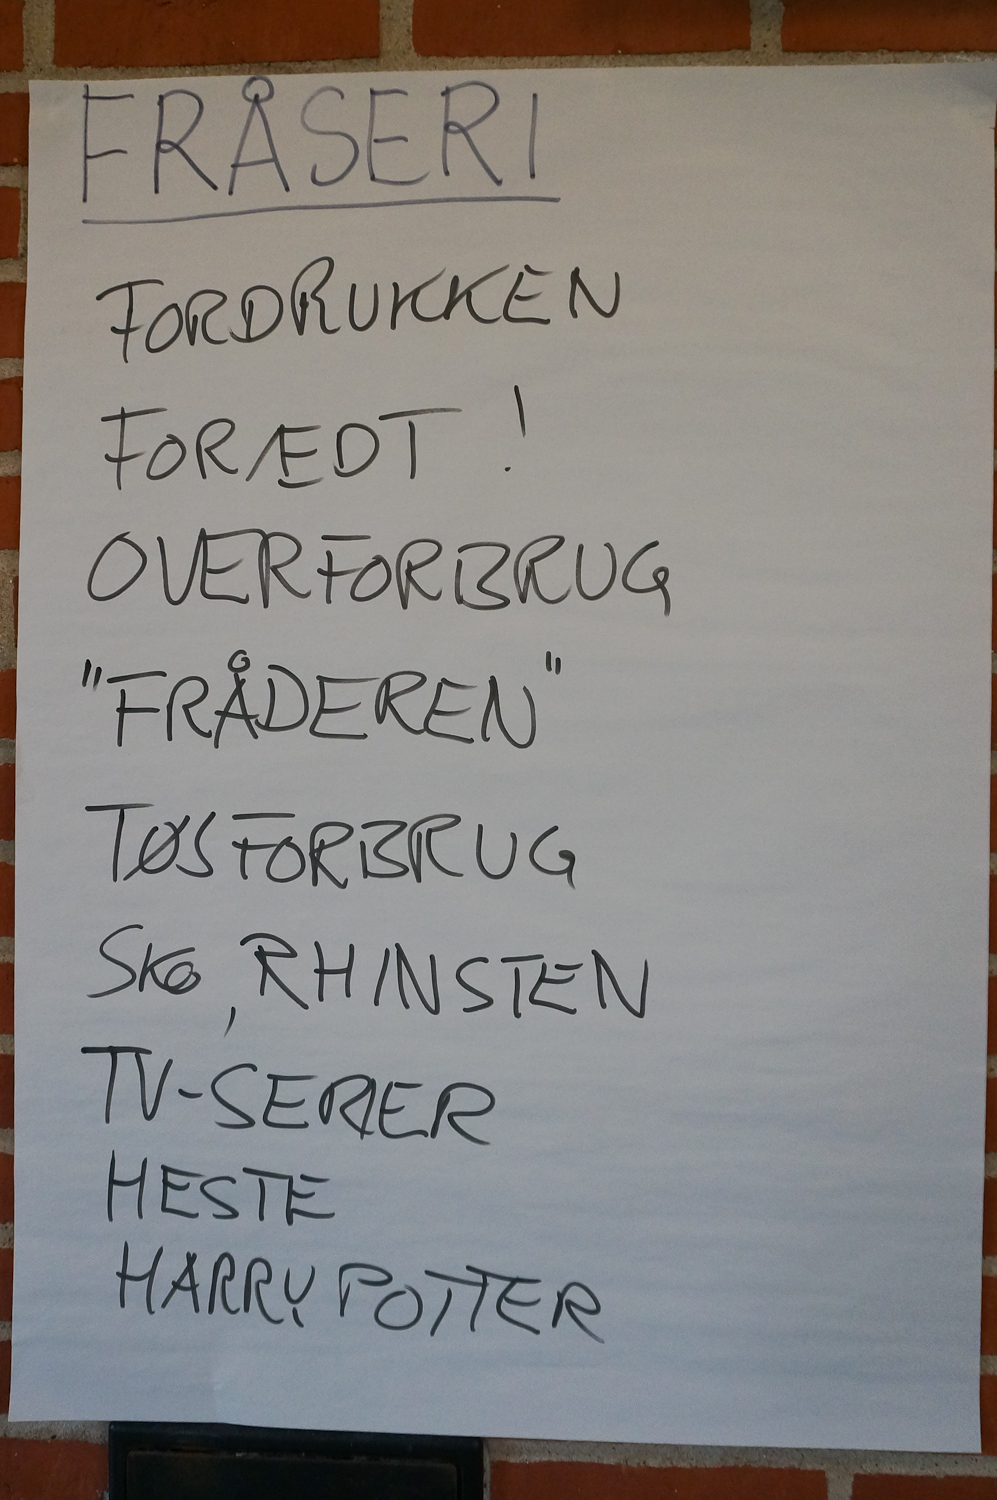 FRÅSERI
FORDRUKKEN
FORÆDT !
OVERFORBRUG
"FRÅDEREN"
TØSFORBRUG
SKO, RHINSTEN
TV-SERIER
HESTE
HARRY POTTER